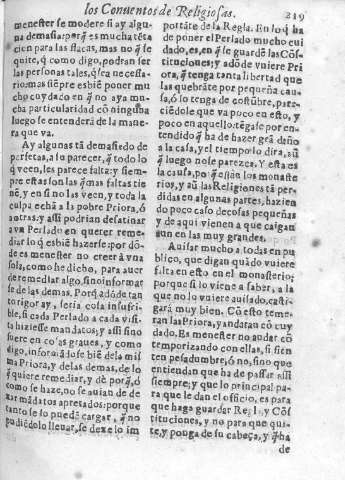 los Conuentos de Religiosas. 219
menester se modere si ay algu
na demasia: porq̃ es mucha tẽta
cion para las flacas, mas no q̃ se
quite, q̃ como digo, podran ser
las personas tales, q̃ sea necessa-
rio: mas siẽpre es biẽ poner mu
cho cuydado en q̃ no aya mu-
cha particularidad cõ ninguna
luego se entenderá de la mane
ra que va.
Ay algunas tã demasiado de
perfetas, a su parecer, q̃ todo lo
q̃ veen, les parece falta: y siem-
pre estas son las q̃ mas faltas tie
nẽ, y en si no las veen, y toda la
culpa echã a la pobre Priora, ó
a otras: y assi podrian desatinar
a vn Perlado en querer reme-
diar lo q̃ es biẽ hazerse: por dõ
de es menester no creer à vna
sola, como he dicho, para auer
de remediar algo, sino informar
se de las demas. Porq̃ adõde tan
to rigor ay, seria cosa insufri-
ble, si cada Perlado a cada visi-
ta hiziesse mandatos; y assi sino
fuere en cosas graues, y como
digo, informãdose biẽ de la mis
ma Priora, y de las demas, de lo
q̃ quiere remediar, y de porq̃, ó
como se haze, no se auian de de
xar mãdatos apretados: porque
tanto se podẽ cargar, q̃ no
pudiẽdolo lleuar, se dexe lo im
portãte de la Regla. En lo q̃ ha
de poner el Perlado mucho cui
dado, es, en q̃ se guardẽ las Cõs
tituciones; y adõde vuiere Prio
ra, q̃ tenga tanta libertad que
las quebrãte por pequeña cau-
sa, ó lo tenga de costũbre, pare-
ciẽdole que va poco en esto, y
poco en aquello: tẽgase por en-
tendido q̃ ha de hazer grã daño
a la casa, y el tiempo lo dira, aũ
q̃ luego no se parezca. Y esta es
la causa, porq̃ estãn los monaste
rios, y aũ las Religiones tã per-
didas en algunas partes, hazien
do poco caso de cosas pequeñas
y de aqui vienen a que caigan
aun en las muy grandes.
Auisar mucho a todas en pu
blico, que digan quãdo vuiere
falta en esto en el monasterio;
porque si lo viene a saber, a la
que no lo vuiere auisado, casti-
gará muy bien. Cõ esto teme-
ran las Priora, y andaran cõ cuy
dado. Es menester no andar cõ
temporizando con ellas, si sien
ten pesadumbre, ó no, sino que
entiendan que ha de passar assi
siempre; y que lo principal pa-
ra que le dan el officio, es para
que haga guardar Regla, y Cõs
tituciones, y no para que qui-
te, y ponga de su cabeça, y q̃ ha
de